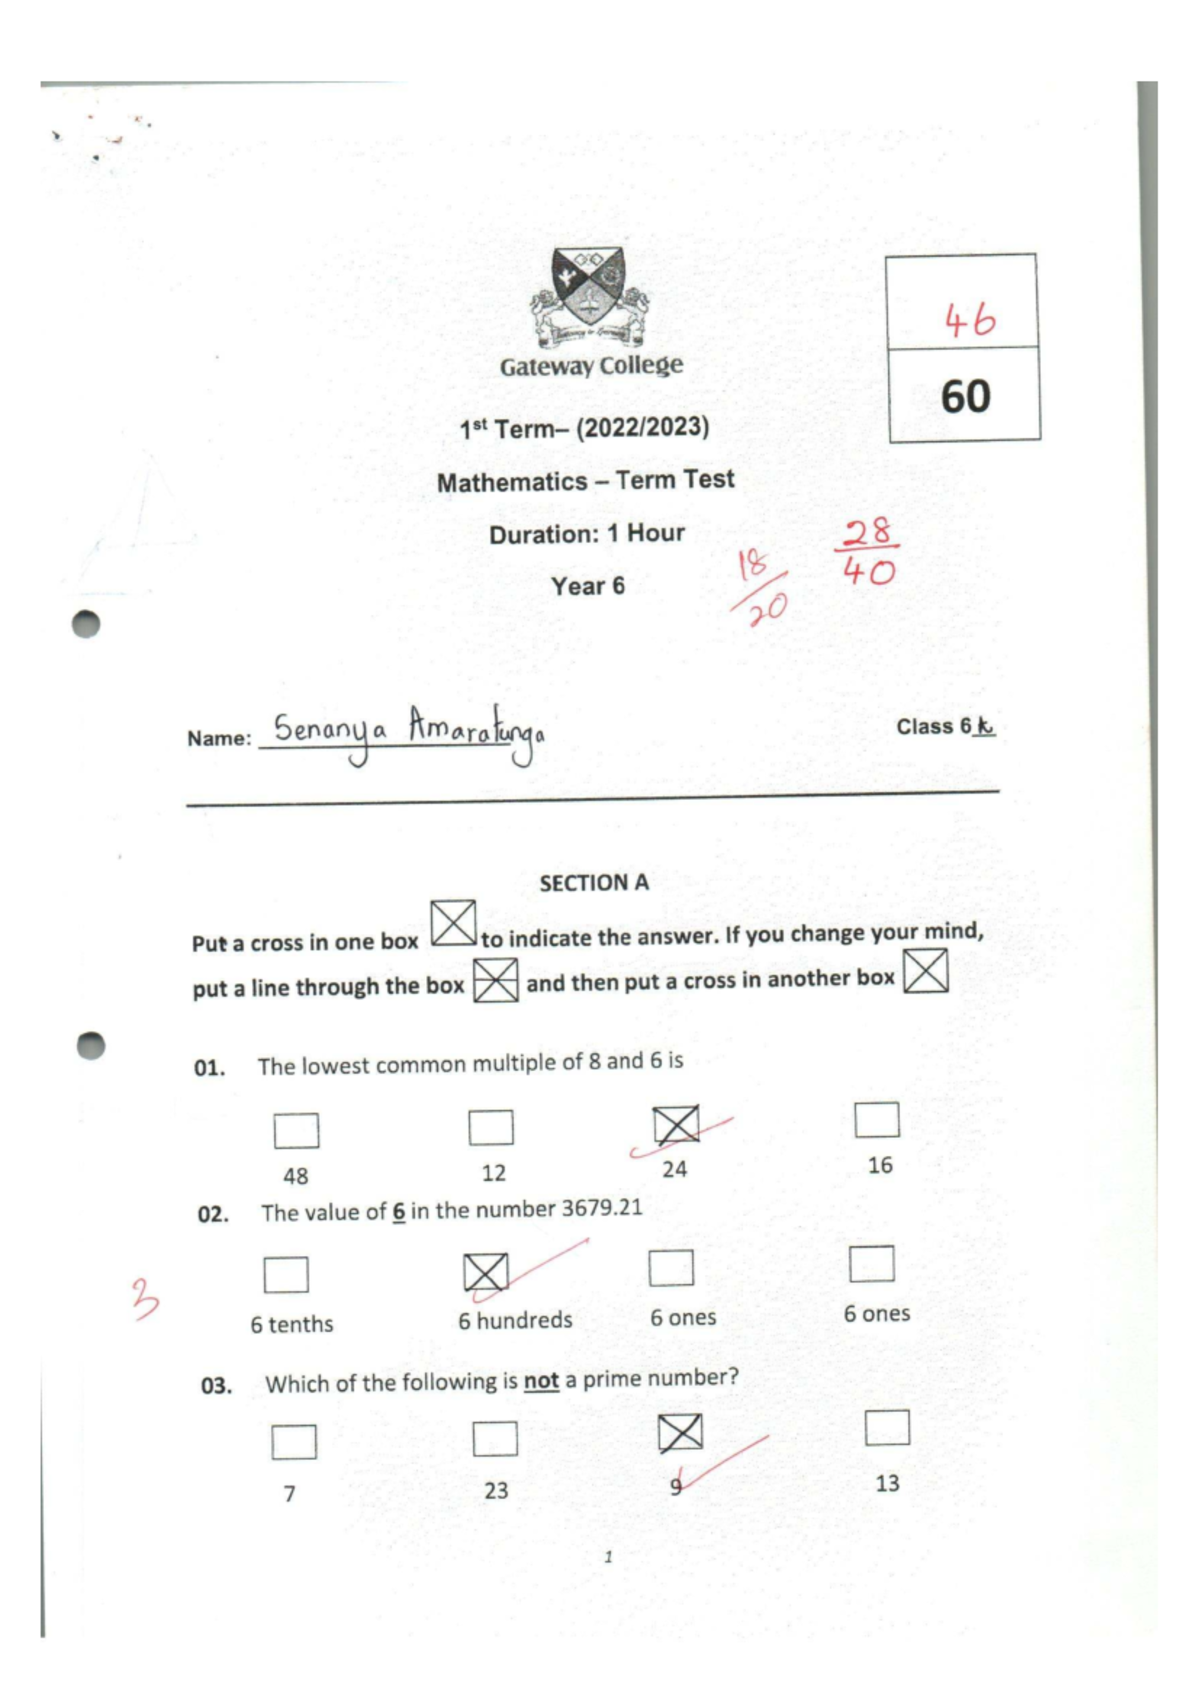 46
60
Gateway College
1st Term– (2022/2023)
Mathematics – Term Test
Duration: 1 Hour
Year 6
18
20
28
40
Name: Senanya Amaratunga
Class 6 k
SECTION A
Put a cross in one box to indicate the answer. If you change your mind,
put a line through the box and then put a cross in another box
01. The lowest common multiple of 8 and 6 is
48 12 24 16
02. The value of 6 in the number 3679.21
3
6 tenths 6 hundreds 6 ones 6 ones
03. Which of the following is not a prime number?
7 23 9 13
1